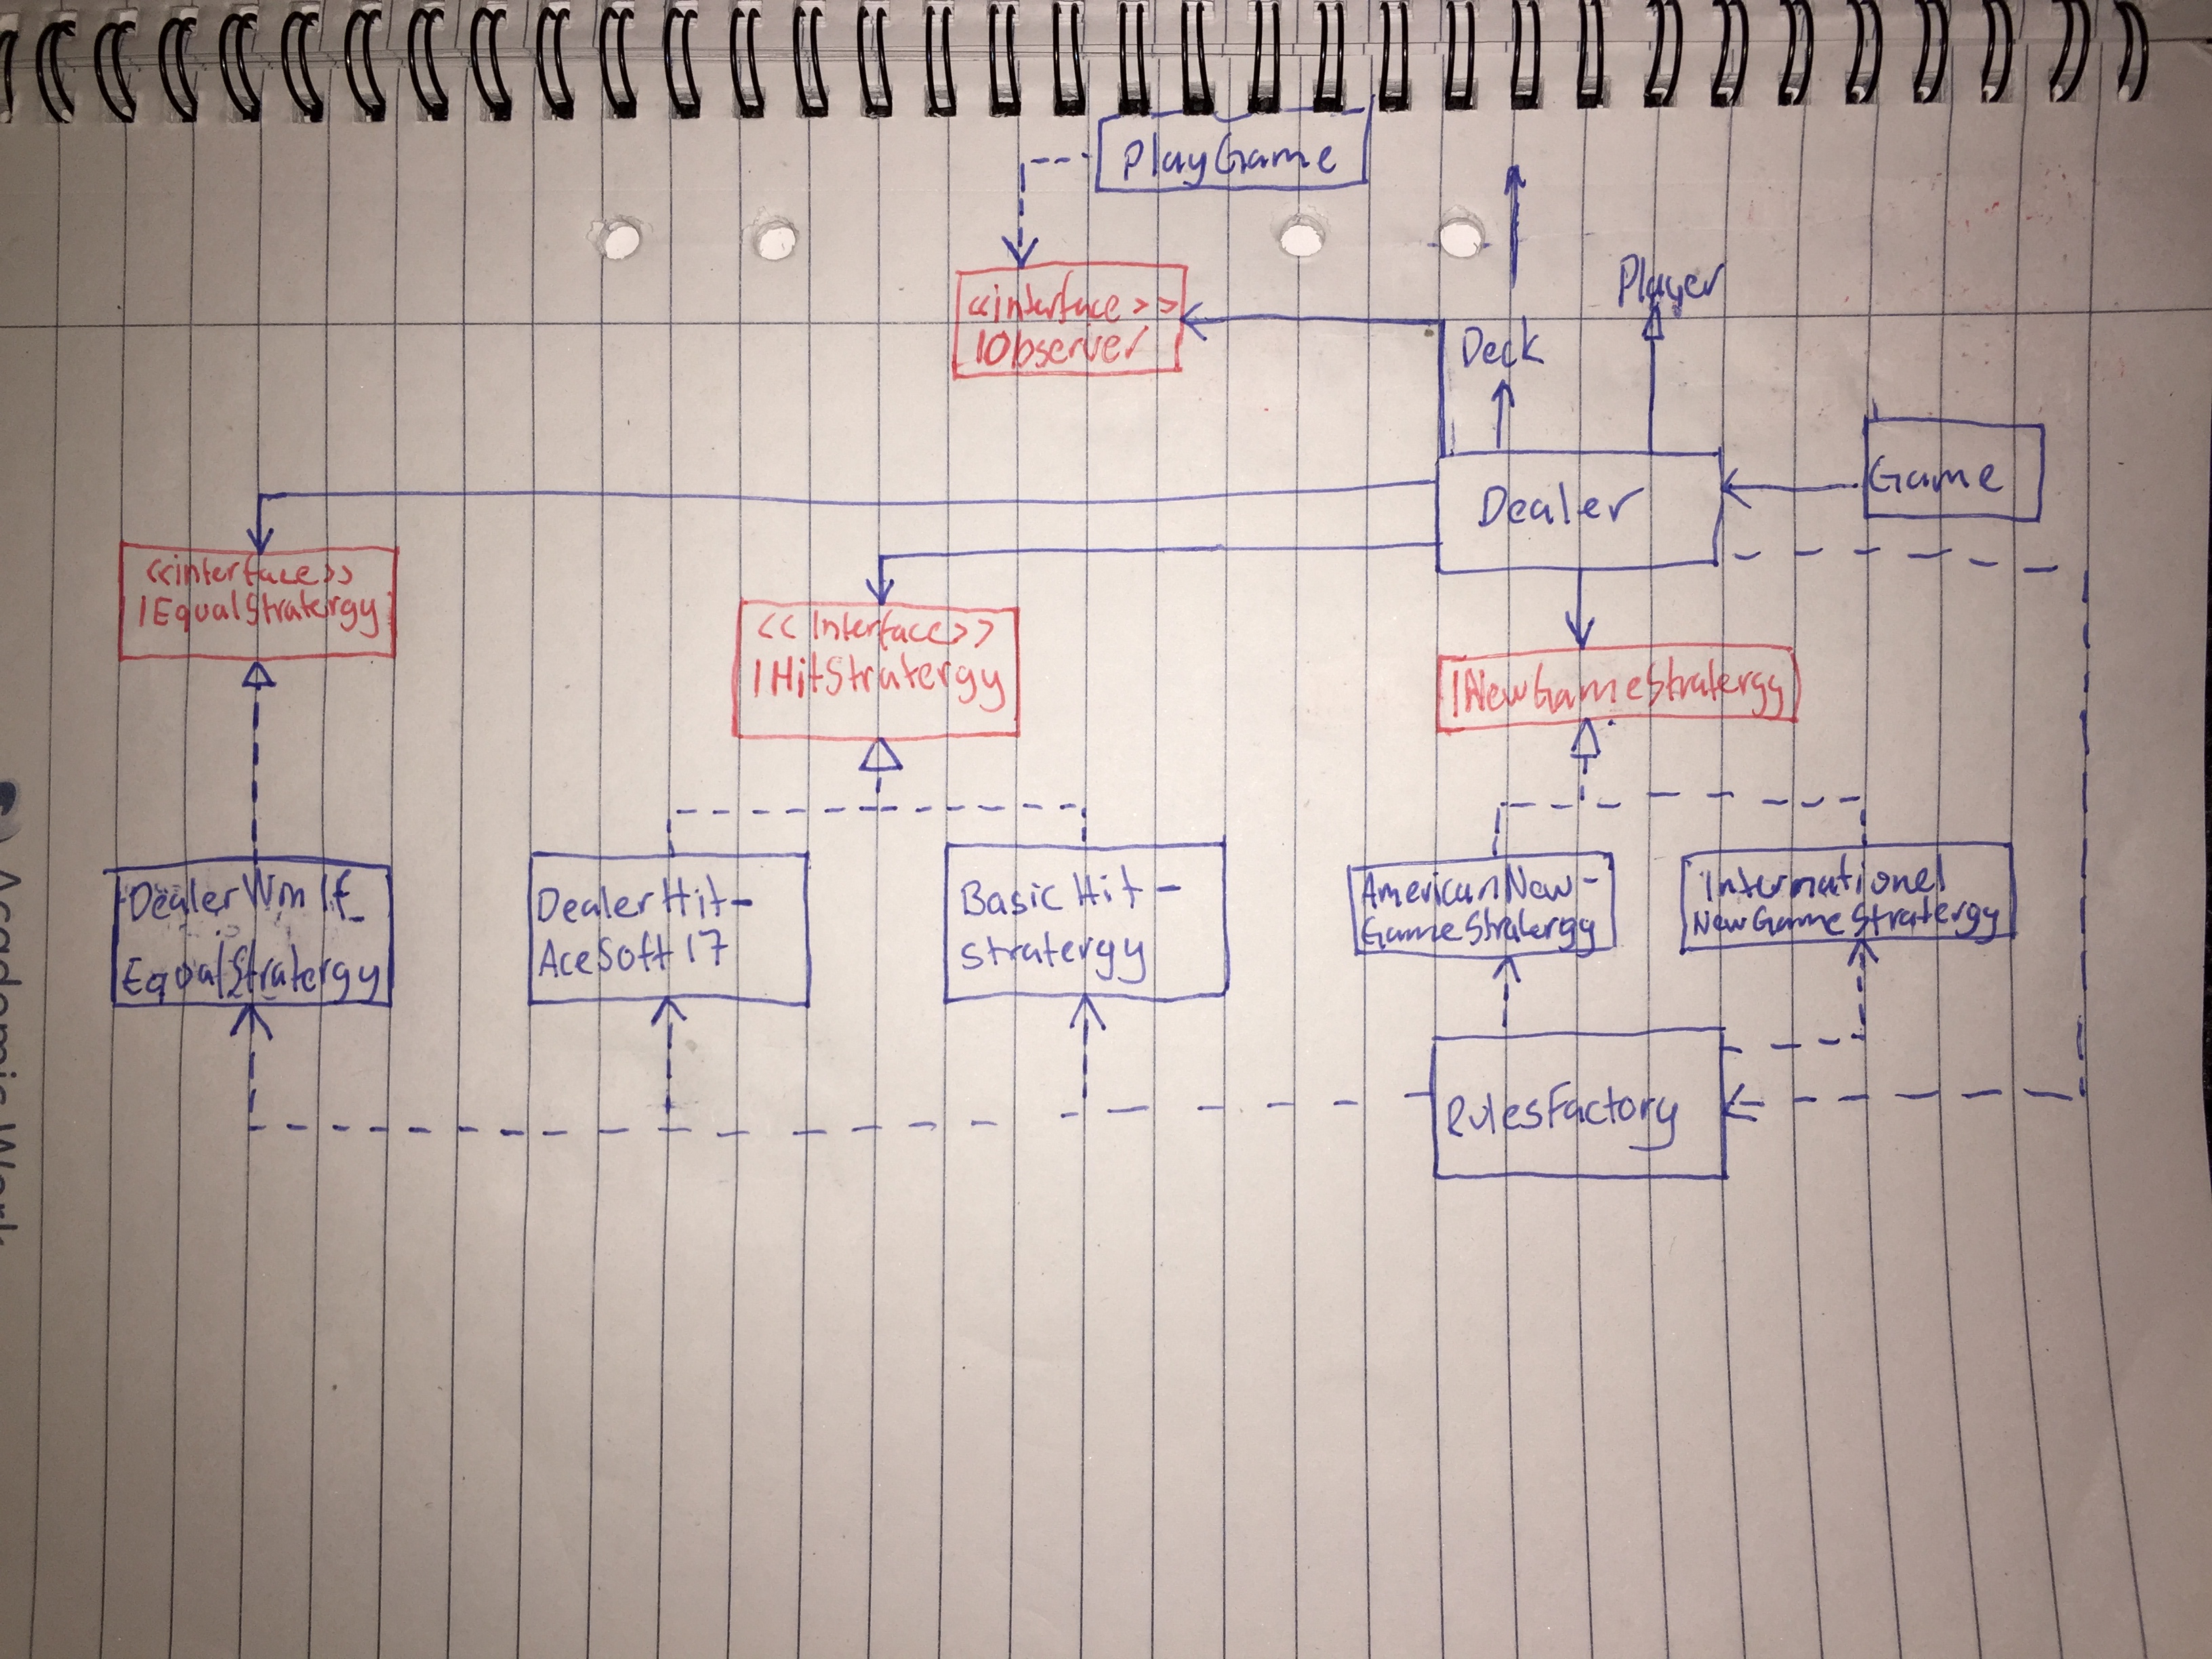 PlayGame
Player
<<interface>>
IObserver
Deck
Game
Dealer
<<interface>>
IEqualStratergy
<<Interface>>
IHitStratergy
INewGameStratergy
DealerWinIf_
EqualStratergy
DealerHit-
AceSoft17
BasicHit-
stratergy
AmericanNew-
GameStratergy
Internationel
NewGameStratergy
RulesFactory
Academic Work